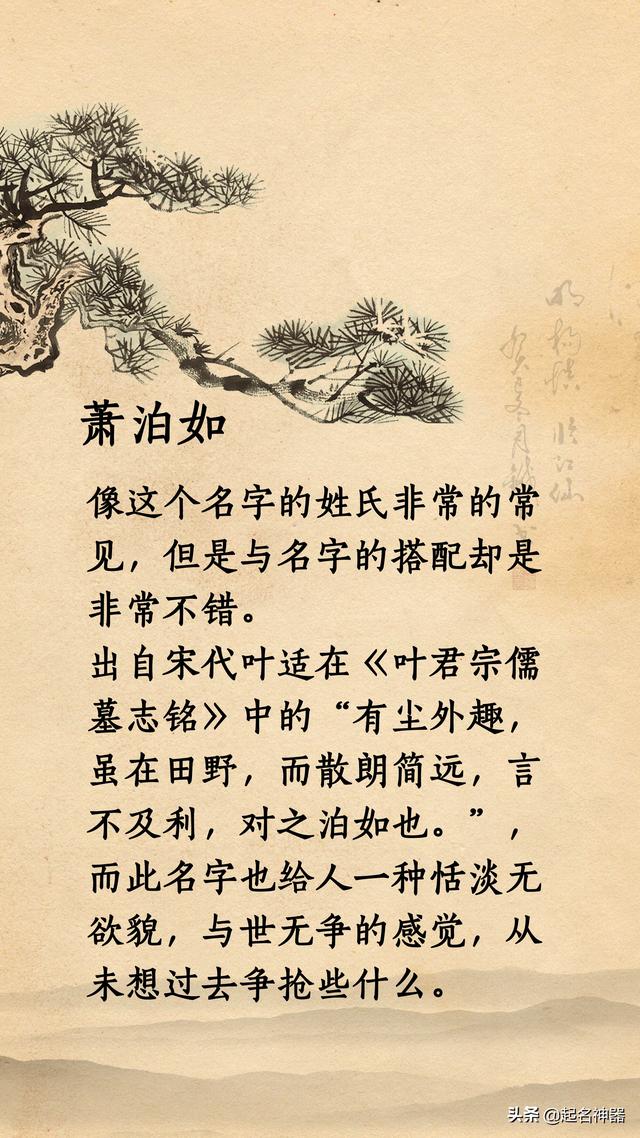 萧泊如
像这个名字的姓氏非常的常
见，但是与名字的搭配却是
非常不错。
出自宋代叶适在《叶君宗儒
墓志铭》中的“有尘外趣，
虽在田野，而散朗简远，言
不及利，对之泊如也。”，
而此名字也给人一种恬淡无
欲貌，与世无争的感觉，从
未想过去争抢些什么。
明 杨慎 临江仙
头条 @起名神器